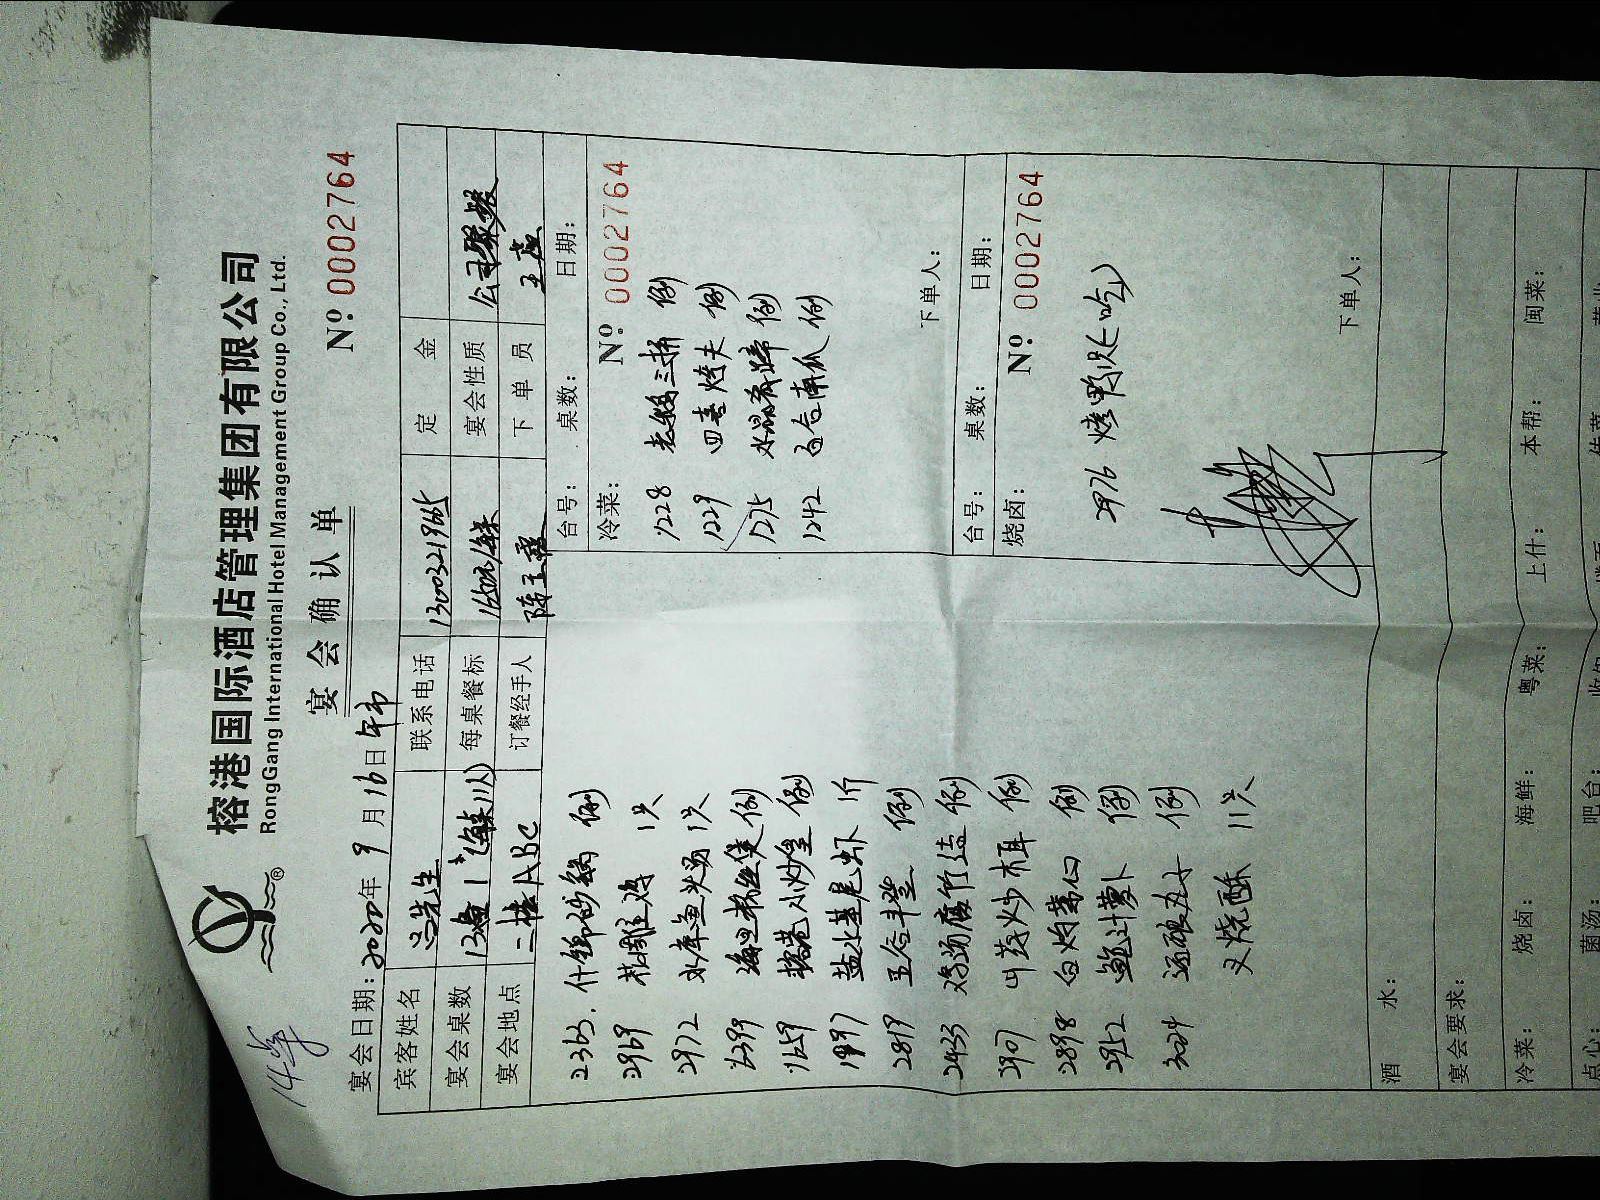 榕港国际酒店管理集团有限公司
RongGang International Hotel Management Group Co., Ltd.
®
宴会确认单
Nº 0002764
14桌
宴会日期:2020年9月16日 午市
宾客姓名 冯先生 联系电话 13003219665 定金
宴会桌数 1桌(每桌11人) 每桌餐标 1660元/桌 宴会性质 公司聚餐
宴会地点 二楼ABC 订餐经手人 陈玉 下单员 王燕
2363. 什锦砂锅 例
2969 花雕鸡 1只
2972 水库鱼头汤 1只
2399 粉丝 例
1659 榕港小炒皇 例
1997 盐水基尾虾 1斤
2819 五谷丰登 例
2433 鸡汤腐竹 例
2907 山药炒木耳 例
2898 白灼 例
2952 鲍汁萝卜 例
3029 丸子 例
叉烧酥 11只
台号: 桌数: 日期:
冷菜: Nº 0002764
1228 老 三拼 例
1229 四喜烤夫 例
1215 水晶肴蹄 例
1242 百合南瓜 例
下单人:
台号: 桌数: 日期:
烧卤: Nº 0002764
2976 烤鸭(只 吃)
下单人:
酒水:
宴会要求:
冷菜: 烧卤: 海鲜: 粤菜: 上什: 本帮: 闽菜:
点心: 菌汤: 吧台: